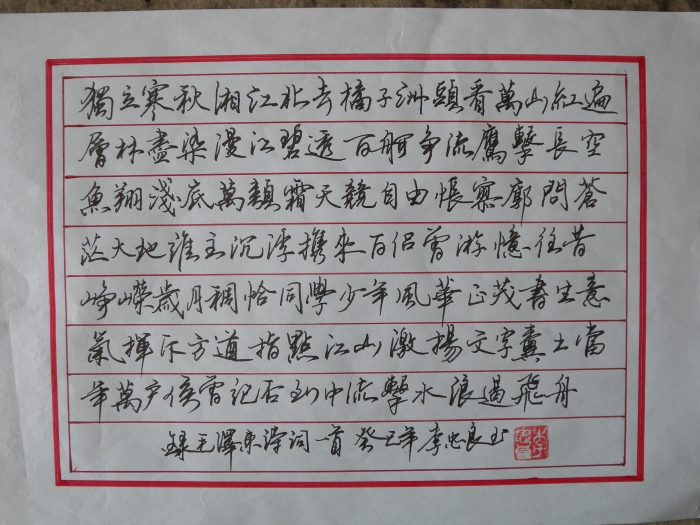 獨立寒秋湘江北去橘子洲頭看萬山紅遍
層林盡染漫江碧透百舸爭流鷹擊長空
魚翔淺底萬類霜天競自由悵寥廓問蒼
茫大地誰主沉浮携來百侣曾游憶往昔
崢嶸歲月稠恰同學少年風華正茂書生意
氣揮斥方遒指點江山激揚文字糞土當
年萬户侯曾記否到中流擊水浪遏飛舟
錄毛澤東詩詞一首 癸巳年 李忠良